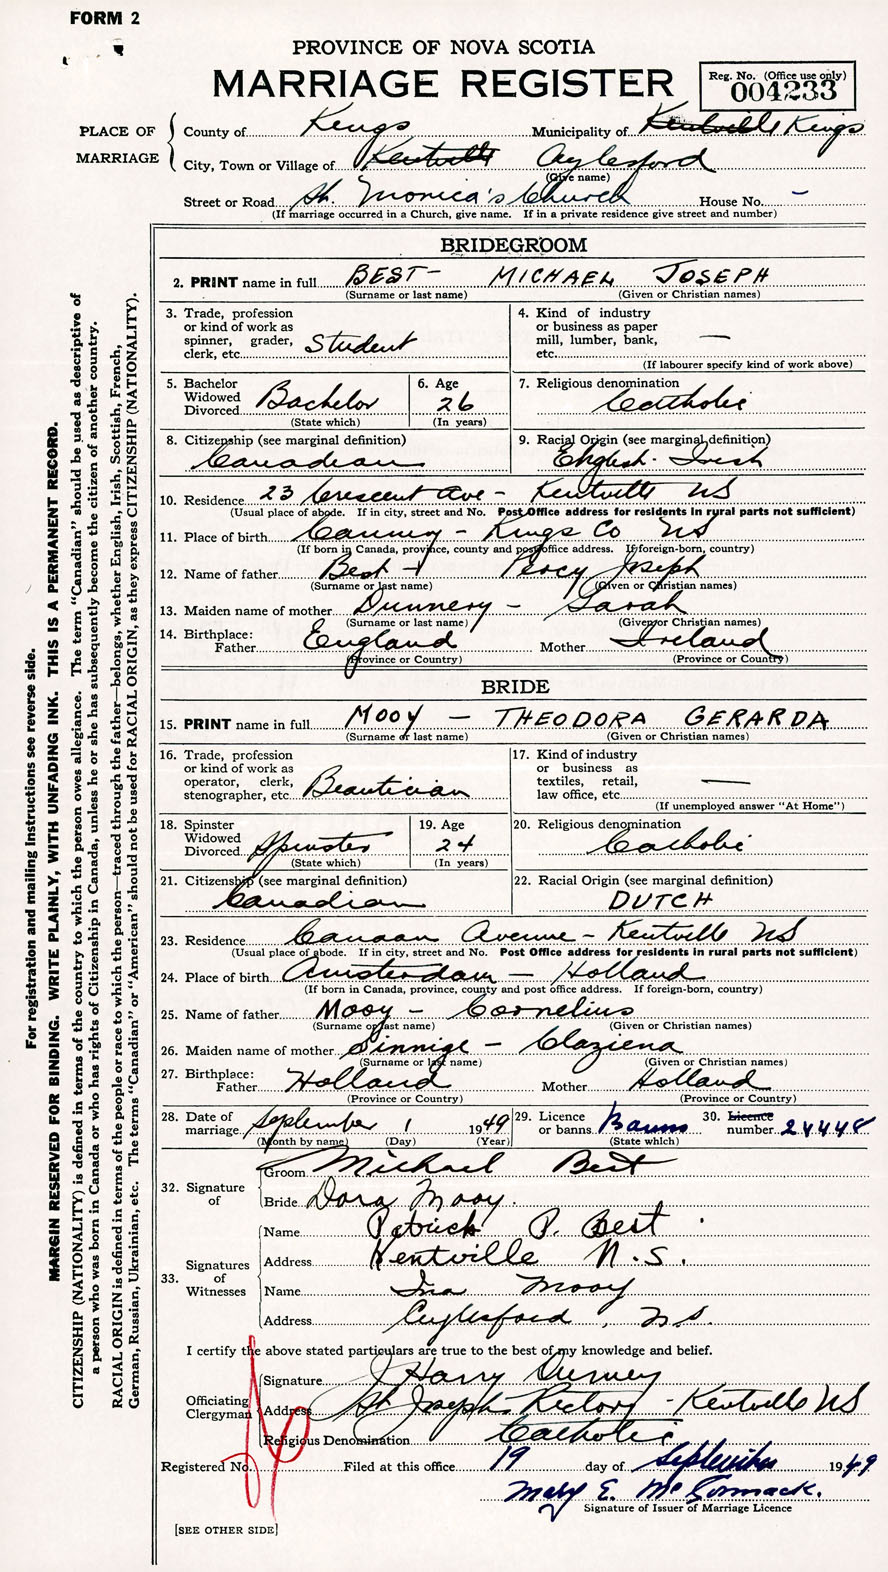 FORM 2
PROVINCE OF NOVA SCOTIA
MARRIAGE REGISTER
Reg. No. (Office use only)
004233
PLACE OF MARRIAGE
County of Kings Municipality of Kentville Kings
City, Town or Village of Kentville Aylesford
(Give name)
Street or Road St. Monica's Church House No. -
(If marriage occurred in a Church, give name. If in a private residence give street and number)
BRIDEGROOM
2. PRINT name in full BEST - MICHAEL JOSEPH
(Surname or last name) (Given or Christian names)
3. Trade, profession or kind of work as spinner, grader, clerk, etc. Student
4. Kind of industry or business as paper mill, lumber, bank, etc. —
(If labourer specify kind of work above)
5. Bachelor Widowed Divorced Bachelor
(State which)
6. Age 26
(In years)
7. Religious denomination Catholic
8. Citizenship (see marginal definition) Canadian
9. Racial Origin (see marginal definition) English - Irish
10. Residence 23 Crescent Ave - Kentville NS
(Usual place of abode. If in city, street and No. Post Office address for residents in rural parts not sufficient)
11. Place of birth Canning - Kings Co NS
(If born in Canada, province, county and post office address. If foreign-born, country)
12. Name of father Best - Percy Joseph
(Surname or last name) (Given or Christian names)
13. Maiden name of mother Dunnery - Sarah
(Surname or last name) (Given or Christian names)
14. Birthplace:
Father England Mother Ireland
(Province or Country) (Province or Country)
BRIDE
15. PRINT name in full MOOY - THEODORA GERARDA
(Surname or last name) (Given or Christian names)
16. Trade, profession or kind of work as operator, clerk, stenographer, etc. Beautician
17. Kind of industry or business as textiles, retail, law office, etc. —
(If unemployed answer "At Home")
18. Spinster Widowed Divorced Spinster
(State which)
19. Age 24
(In years)
20. Religious denomination Catholic
21. Citizenship (see marginal definition) Canadian
22. Racial Origin (see marginal definition) DUTCH
23. Residence Canaan Avenue - Kentville NS
(Usual place of abode. If in city, street and No. Post Office address for residents in rural parts not sufficient)
24. Place of birth Amsterdam - Holland
(If born in Canada, province, county and post office address. If foreign-born, country)
25. Name of father Mooy - Cornelius
(Surname or last name) (Given or Christian names)
26. Maiden name of mother Sinnige - Claziena
(Surname or last name) (Given or Christian names)
27. Birthplace:
Father Holland Mother Holland
(Province or Country) (Province or Country)
28. Date of marriage September 1 1949
(Month by name) (Day) (Year)
29. Licence or banns Banns
(State which)
30. Licence number 24448
32. Signature of
Groom Michael Best
Bride Dora Mooy.
33. Signatures of Witnesses
Name Patrick P. Best
Address Kentville N.S.
Name Ina Mooy
Address Aylesford, NS.
I certify the above stated particulars are true to the best of my knowledge and belief.
Officiating Clergyman
Signature J Harry Durney
Address St Joseph Rectory - Kentville NS
Religious Denomination Catholic
Registered No. Filed at this office 19 day of September 1949
Mary E. McCormack.
Signature of Issuer of Marriage Licence
[SEE OTHER SIDE]
For registration and mailing instructions see reverse side.
MARGIN RESERVED FOR BINDING. WRITE PLAINLY, WITH UNFADING INK. THIS IS A PERMANENT RECORD.
CITIZENSHIP (NATIONALITY) is defined in terms of the country to which the person owes allegiance. The term "Canadian" should be used as descriptive of
a person who was born in Canada or who has rights of Citizenship in Canada, unless he or she has subsequently become the citizen of another country.
RACIAL ORIGIN is defined in terms of the people or race to which the person—traced through the father—belongs, whether English, Irish, Scottish, French,
German, Russian, Ukrainian, etc. The terms "Canadian" or "American" should not be used for RACIAL ORIGIN, as they express CITIZENSHIP (NATIONALITY).